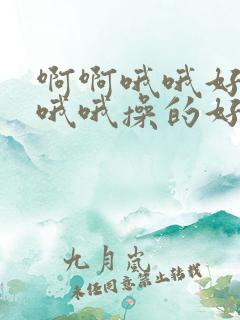 啊啊哦哦好
哦哦操的好
九月岚
未经同意禁止转载